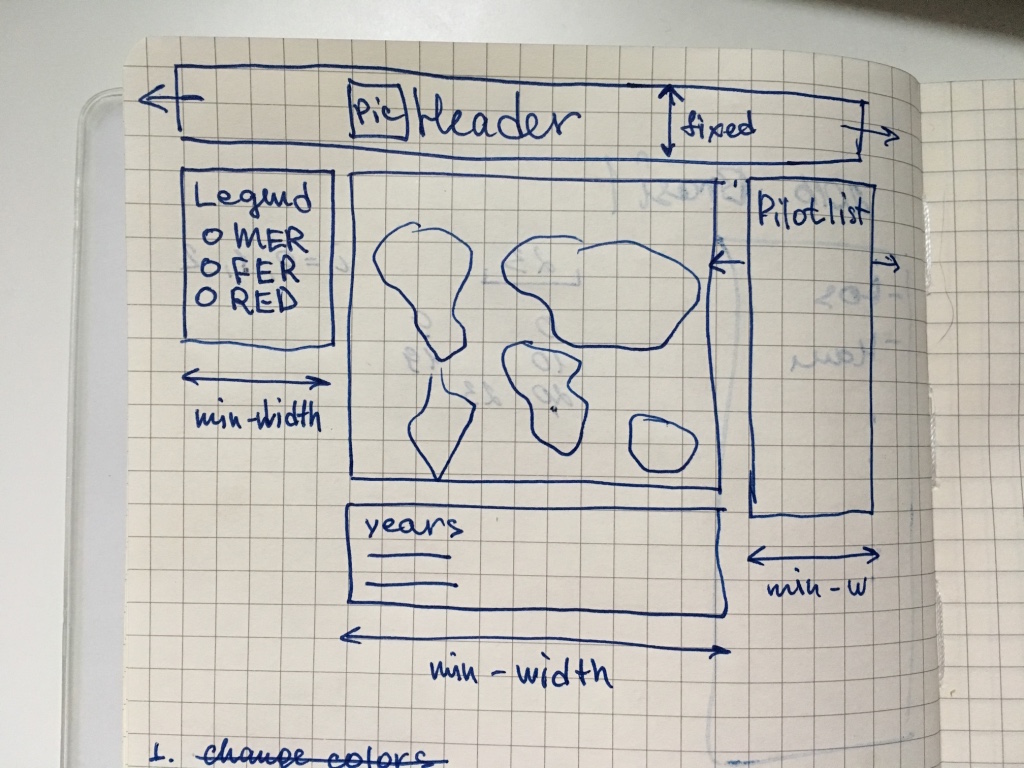 Pic Header
fixed
Legend
O MER
O FER
O RED
min-width
Pilot list
min-w
years
min-width
1. change colors